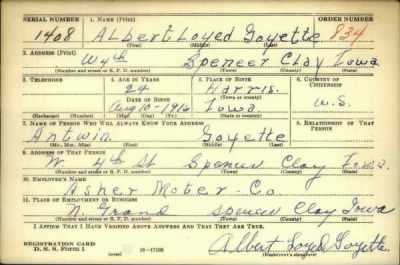 SERIAL NUMBER 1. NAME (Print) ORDER NUMBER
1408 Albert Loyed Goyette 834
(First) (Middle) (Last)
2. ADDRESS (Print)
W 4th Spencer Clay Iowa
(Number and street or R. F. D. number) (Town) (County) (State)
3. TELEPHONE 4. AGE IN YEARS 5. PLACE OF BIRTH 6. COUNTRY OF CITIZENSHIP
24 Harris
DATE OF BIRTH (Town or county)
Aug 10-1916 Iowa U.S.
(Exchange) (Number) (Mo.) (Day) (Yr.) (State or country)
7. NAME OF PERSON WHO WILL ALWAYS KNOW YOUR ADDRESS 8. RELATIONSHIP OF THAT PERSON
Antwin Goyette
(Mr., Mrs., Miss) (First) (Middle) (Last)
9. ADDRESS OF THAT PERSON
W 4th St Spencer Clay Iowa
(Number and street or R. F. D. number) (Town) (County) (State)
10. EMPLOYER'S NAME
Asher Moter-Co
11. PLACE OF EMPLOYMENT OR BUSINESS
N Grand Spencer Clay Iowa
(Number and street or R. F. D. number) (Town) (County) (State)
I AFFIRM THAT I HAVE VERIFIED ABOVE ANSWERS AND THAT THEY ARE TRUE.
REGISTRATION CARD
D. S. S. FORM 1 16-17105 Albert Loyed Goyette
(Registrant's signature)